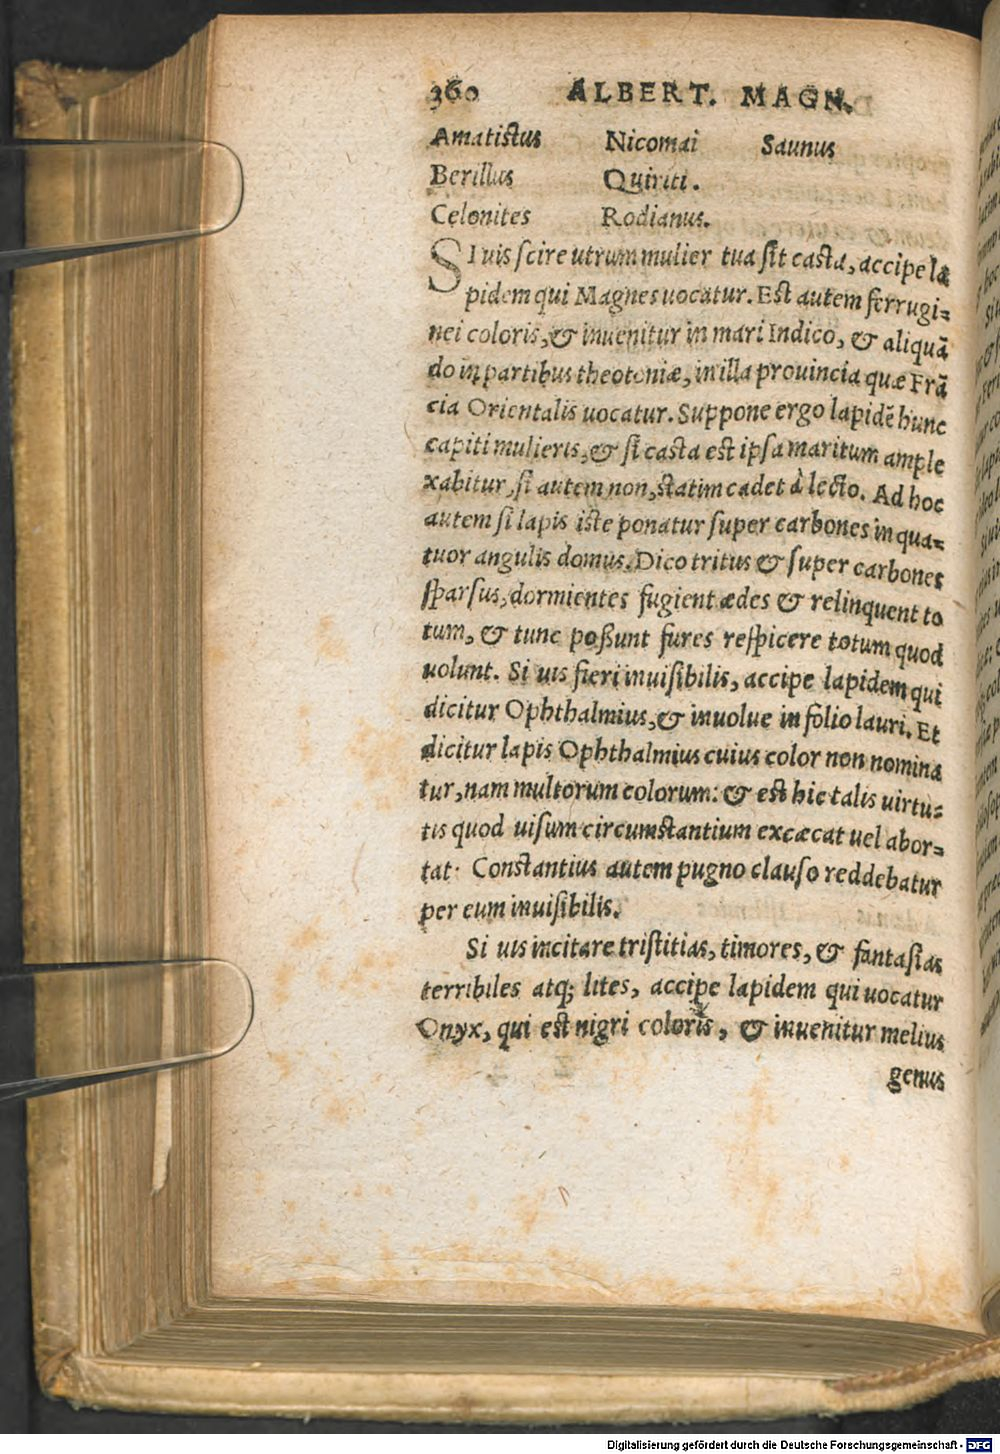 360 ALBERT. MAGN.
Amatistus Nicomai Saunus
Berillus Quiriti.
Celonites Rodianus.
SI uis scire utrum mulier tua sit casta, accipe la
pidem qui Magnes uocatur. Est autem ferrugi=
nei coloris, & inuenitur in mari Indico, & aliquã
do in partibus theotoniæ, in illa prouincia quæ Frã
cia Orientalis uocatur. Suppone ergo lapidẽ hunc
capiti mulieris, & si casta est ipsa maritum ample
xabitur, si autem non, statim cadet à lecto. Ad hoc
autem si lapis iste ponatur super carbones in qua=
tuor angulis domus. Dico tritus & super carbones
sparsus, dormientes fugient ædes & relinquent to
tum, & tunc poßunt fures respicere totum quod
uolunt. Si uis fieri inuisibilis, accipe lapidem qui
dicitur Ophthalmius, & inuolue in folio lauri. Et
dicitur lapis Ophthalmius cuius color non nomina
tur, nam multorum colorum: & est hic talis uirtu=
tis quod uisum circumstantium excæcat uel abor=
tat· Constantius autem pugno clauso reddebatur
per eum inuisibilis.
Si uis incitare tristitias, timores, & fantasias
terribiles atq; lites, accipe lapidem qui uocatur
Onyx, qui est nigri coloris, & inuenitur melius
genus
Digitalisierung gefördert durch die Deutsche Forschungsgemeinschaft - DFG